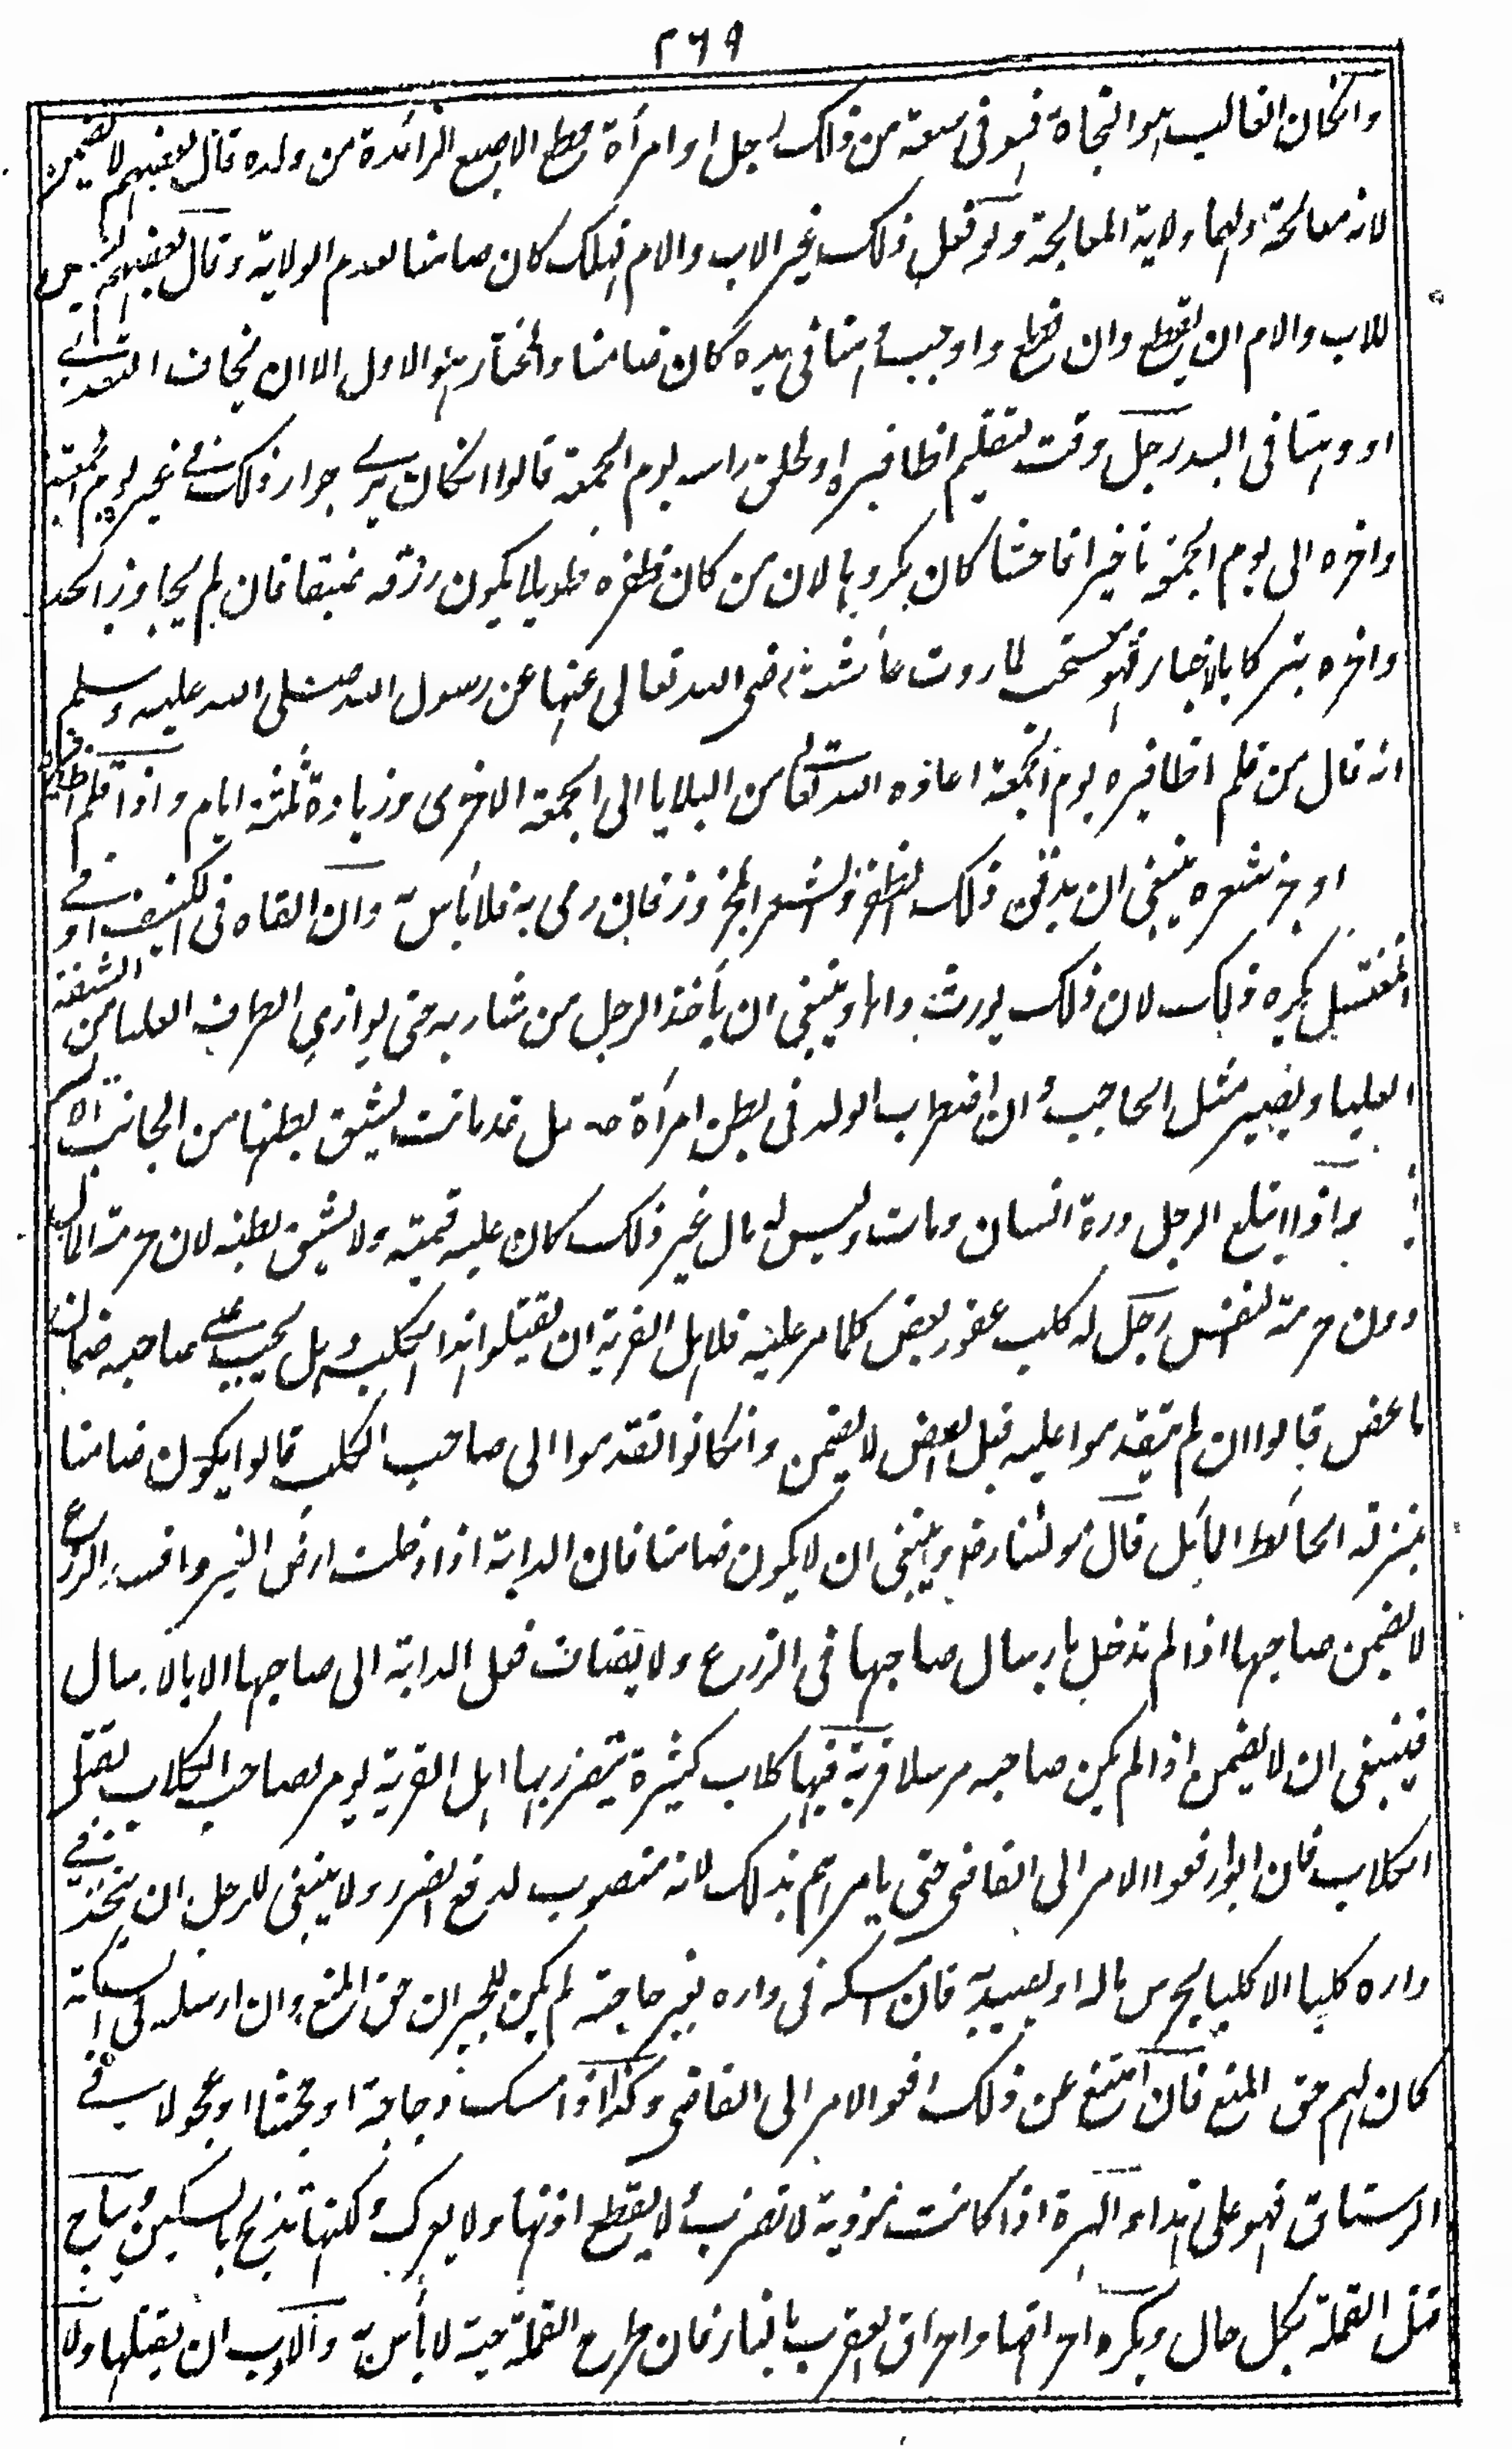 ٢٦٩
وانكان الغالب هو النجاة فهو فى سعة من ذلك رجل او امرأة قطع الاصبع الزائدة من ولده قال بعضهم لا يضمن
لانه معالجة ولهما ولاية المعالجة ولو فعل ذلك غير الاب والام فهلك كان ضامنا لعدم الولاية وقال بعضهم ليس
للاب والام ان يقطع وان قطع واوجب وهنا فى يده كان ضامنا والمختار هو الاول الا ان يخاف التعدى
او وهنا فى اليد رجل وقت لتقليم اظافيره او لحلق راسه يوم الجمعة قالوا انكان يرى جواز ذلك فى غير يوم الجمعة
واخره الى يوم الجمعة تاخيرا فاحشا كان مكروها لان من كان ظفره طويلا يكون رزقه ضيقا فان لم يجاوز الحد
واخره تبركا بالاخبار فهو مستحب لما روت عائشة رضى الله تعالى عنها عن رسول الله صلى الله عليه وسلم
انه قال من قلم اظافيره يوم الجمعة اعاذه الله تعالى من البلايا الى الجمعة الاخرى وزيادة ثلثة ايام واذا قلم اظافيره
او جز شعره ينبغى ان يدفن ذلك الظفر والشعر المجزوز فان رمى به فلا بأس به وان القاه فى الكنيف او فى
المغتسل يكره ذلك لان ذلك يورث داء وينبغى ان يأخذ الرجل من شاربه حتى يوازى الطرف العليا من الشفة
العليا ويصير مثل الحاجب وان اضطرب الولد فى بطن امرأة حامل قد ماتت يشق بطنها من الجانب الايسر
واذا ابتلع الرجل درة انسان ومات وليس له مال غير ذلك كان عليه قيمته ولا يشق بطنه لان حرمة المال
دون حرمة النفس رجل له كلب عقور يعض كلما مر عليه فلاهل القرية ان يقتلوا هذا الكلب وهل يجب على صاحبه ضمان
ما عض قالوا ان لم يتقدموا عليه قبل العض لا يضمن وانكانوا تقدموا الى صاحب الكلب قالوا يكون ضامنا
بمنزلة الحائط المائل قال مولانا رضـ وينبغى ان لا يكون ضامنا فان الدابة اذا دخلت ارض الغير وافسد الزرع
لا يضمن صاحبها اذا لم تدخل بارسال صاحبها فى الزرع ولا يضاف فعل الدابة الى صاحبها الا بالارسال
فينبغى ان لا يضمن اذا لم يكن صاحبه مرسلا قرية فيها كلاب كثيرة يتضرر بها اهل القرية يومر لصاحب الكلاب بقتل
الكلاب فان ابوا رفعوا الامر الى القاضى حتى يامرهم بذلك لانه منصوب لدفع الضرر ولا ينبغى للرجل ان يتخذ فى
داره كلبا الا كلبا يحرس ماله او يصيد به فان امسكه فى داره بغير حاجة لم يكن للجيران حق المنع وان ارسله فى السكة
كان لهم حق المنع فان امتنع عن ذلك رفعوا الامر الى القاضى وكذا اذا امسك دجاجة او جحشا او عجولا فى
الرستاق فهو على هذا والهرة اذا كانت موذية لا تضرب ولا يقطع اذنها ولا يعرك ولكنها تذبح بالسكين ويباح
قتل القملة بكل حال ويكره احراقها واحراق العقرب بالنار فان طرح القملة حية لا بأس به والادب ان يقتلها ولا